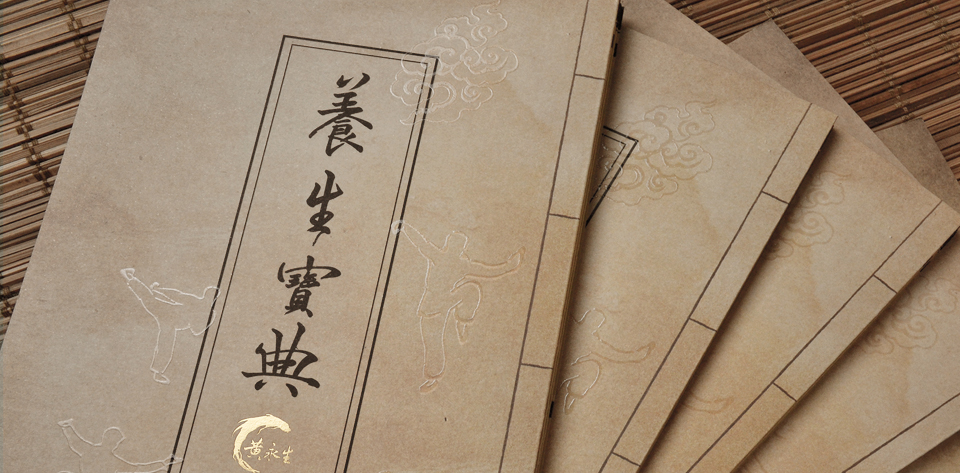 養生寶典
黃永生